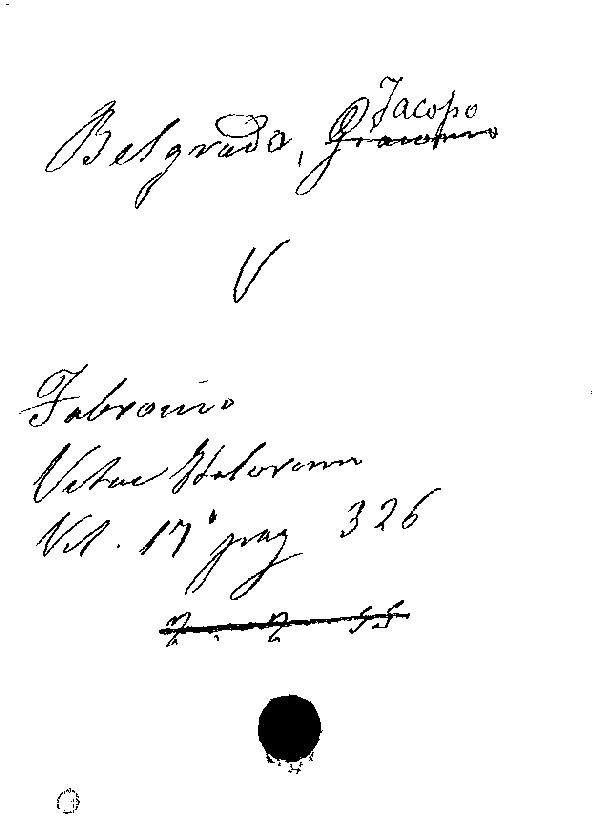 Belgrado, Giacomo Jacopo
V
Fabronio
Vitae Italorum
Vol. 17° pag 326